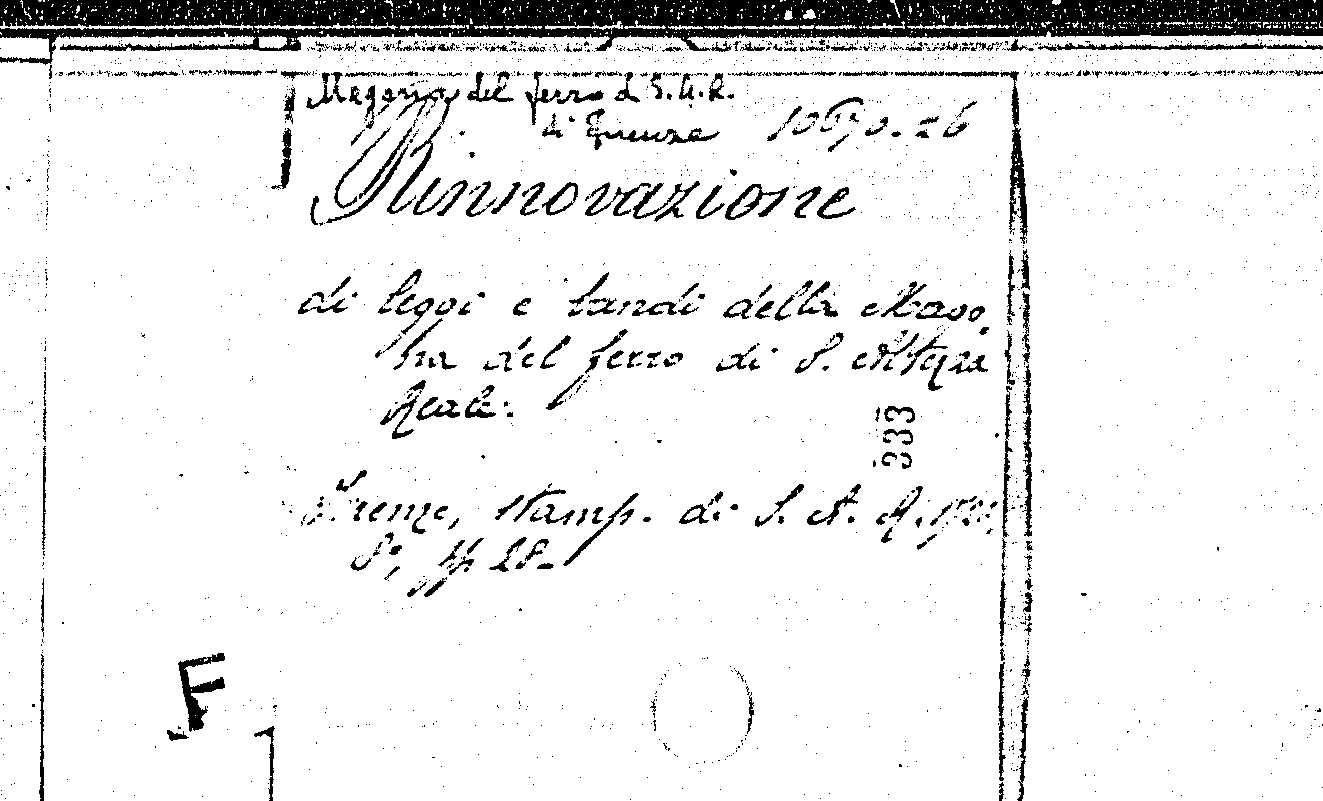 Magona del ferro d S.A.R.
di Firenze 10690.26
Rinnovazione
di leggi e bandi della Mago
na del ferro di S. Altezza
Reale.
333
Firenze, stamp. di S. A. R.
8°, pp 28-
F